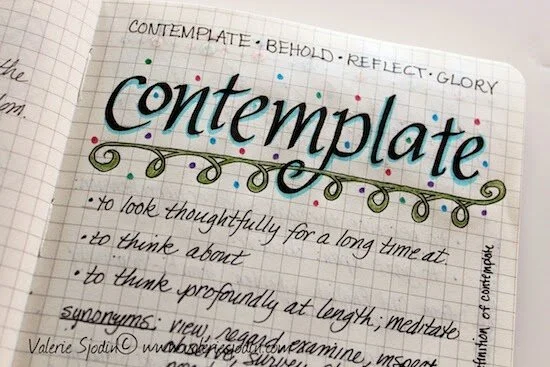 the
CONTEMPLATE • BEHOLD • REFLECT • GLORY
contemplate
• to look thoughtfully for a long time at.
• to think about
• to think profoundly at length; meditate
synonyms: view, regard, examine, inspect
survey
definition of contemplate
Valerie Sjodin© www.valeriesjodin.com